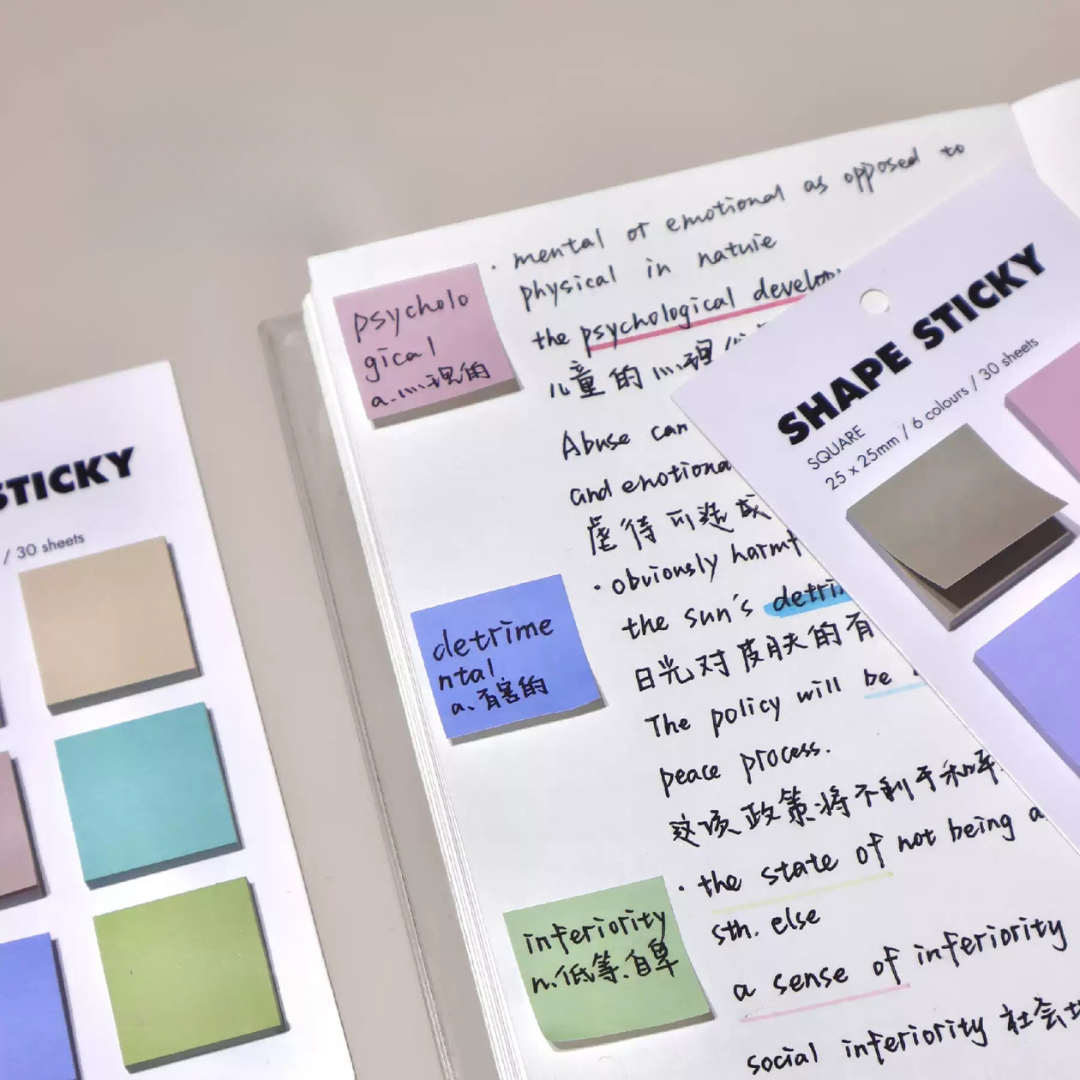 psycholo
gical
a.心理的
· mental or emotional as opposed to
physical in nature
the psychological develop
儿童的心理
Abuse can
and emotiona
虐待可造成
detrime
ntal
a.有害的
· obviously harmf
the sun's detri
日光对皮肤的有
The policy will be
peace process.
这项政策将不利于和平
inferiority
n.低等.自卑
· the state of not being a
sth. else
a sense of inferiority
social inferiority 社会
SHAPE STICKY
SQUARE
25 x 25mm / 6 colours / 30 sheets
STICKY
/ 30 sheets